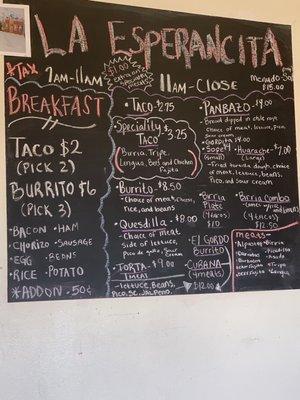 LA ESPERANCITA
*TAX
7AM-11AM
$1.00 extra on speciality meats
11AM-CLOSE
Menudo
$15.00
BREAKFAST
TACO $2
(PICK 2)
BURRITO $6
(PICK 3)
BACON • HAM
CHORIZO • SAUSAGE
EGG • BEANS
RICE • POTATO
*ADDON • 50¢
•TACO-$2.75
Speciality
Tacos $3.25
(Birria, Tripe,
Lengua, Beef and Chicken
Fajita)
•Burrito-$8.50
•Choice of meat, cheese,
rice, and beans
•Quesdilla-$8.00
•Choice of meat
side of lettuce,
pico de gallo, sour
cream
•TORTA-$9.00
1 meat
-lettuce, beans,
Pico, SC, Jalapeno
PANBAZO-$9.00
Bread dipped in chile rojo
Choice of meat, lettuce, pico
sour cream
•GORDITA $4.00
•Sope
(Small)
•Huarache-$7.00
(Large)
Fried tortilla dough, choice
of meat, lettuce, beans,
Pico, and sour cream
•Birria
Plate
(4 tacos)
$10
•Birria Combo
(4 tacos)
$12.50
•EL GORDO
Burrito
•CUBANA
(4 meats)
$12.00
meats-
•Alpastor •Birria